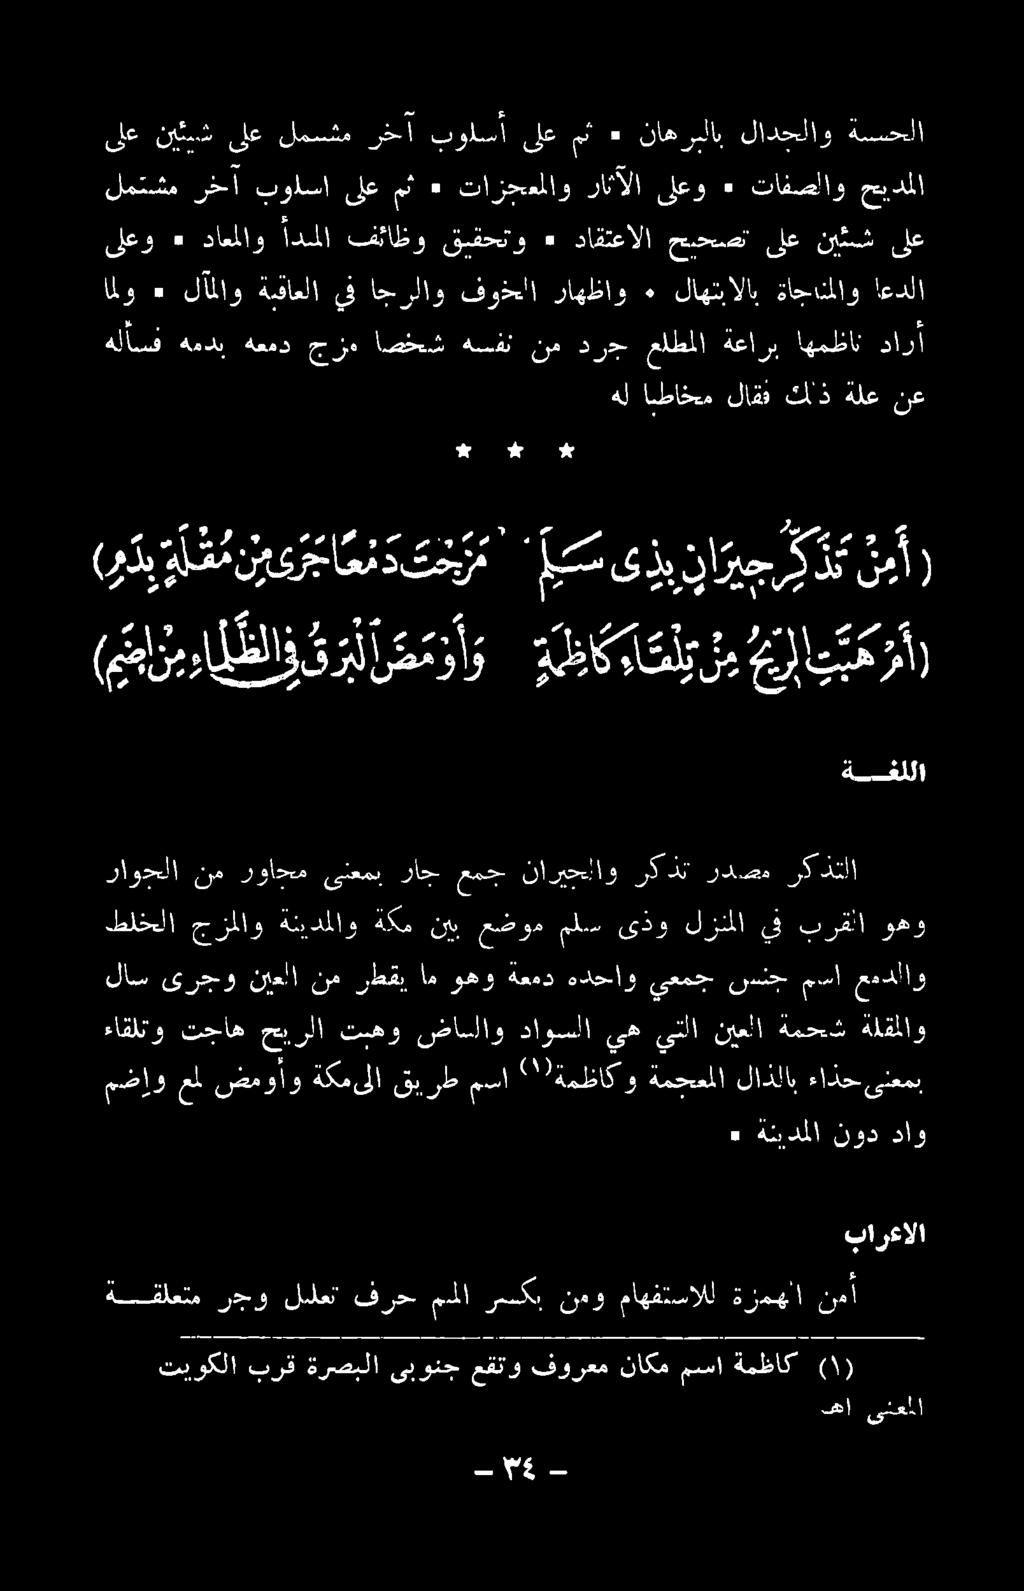 الحسنة والجدال بالبرهان ▪ ثم على أسلوب آخر مشتمل على شيئين على
المديح والصفات ▪ وعلى الآثار والمعجزات ▪ ثم على اسلوب آخر مشتمل
على شيئين على تصحيح الاعتقاد ▪ وتحقيق وظائف المبدأ والمعاد ▪ وعلى
الدعا والمناجاة بالابتهال ♦ واظهار الخوف والرجا في العاقبة والمآل ▪ ولما
أراد ناظمها براعة المطلع جرد من نفسه شخصا مزج دمعه بدمه فسأله
عن علة ذلك فقال مخاطبا له
★ ★ ★
(أَمِنْ تَذَكُّرِ جِيرَانٍ بِذِى سَلَمٍ مَزَجْتَ دَمْعًا جَرَى مِنْ مُقْلَةٍ بِدَمِ)
(أَمْ هَبَّتِ الرِّيحُ مِنْ تِلْقَاءِ كَاظِمَةٍ وَأَوْمَضَ الْبَرْقُ فِي الظَّلْمَاءِ مِنْ إِضَمِ)
اللغـــة
التذكر مصدر تذكر والجيران جمع جار بمعنى مجاور من الجوار
وهو القرب في المنزل وذى سلم موضع بين مكة والمدينة والمزج الخلط
والدمع اسم جنس جمعي واحده دمعة وهو ما يقطر من العين وجرى سال
والمقلة شحمة العين التي هي السواد والبياض وهبت الريح هاجت وتلقاء
بمعنى حذاء بالذال المعجمة وكاظمة (١) اسم طريق الى مكة وأومض لمع وإضم
واد دون المدينة ▪
الاعراب
أمن الهمزة للاستفهام ومن بكسر الميم حرف تعليل وجر متعلقـــة
(١) كاظمة اسم مكان معروف وتقع جنوبى البصرة قرب الكويت
المعنى اهـ
– ٣٤ –